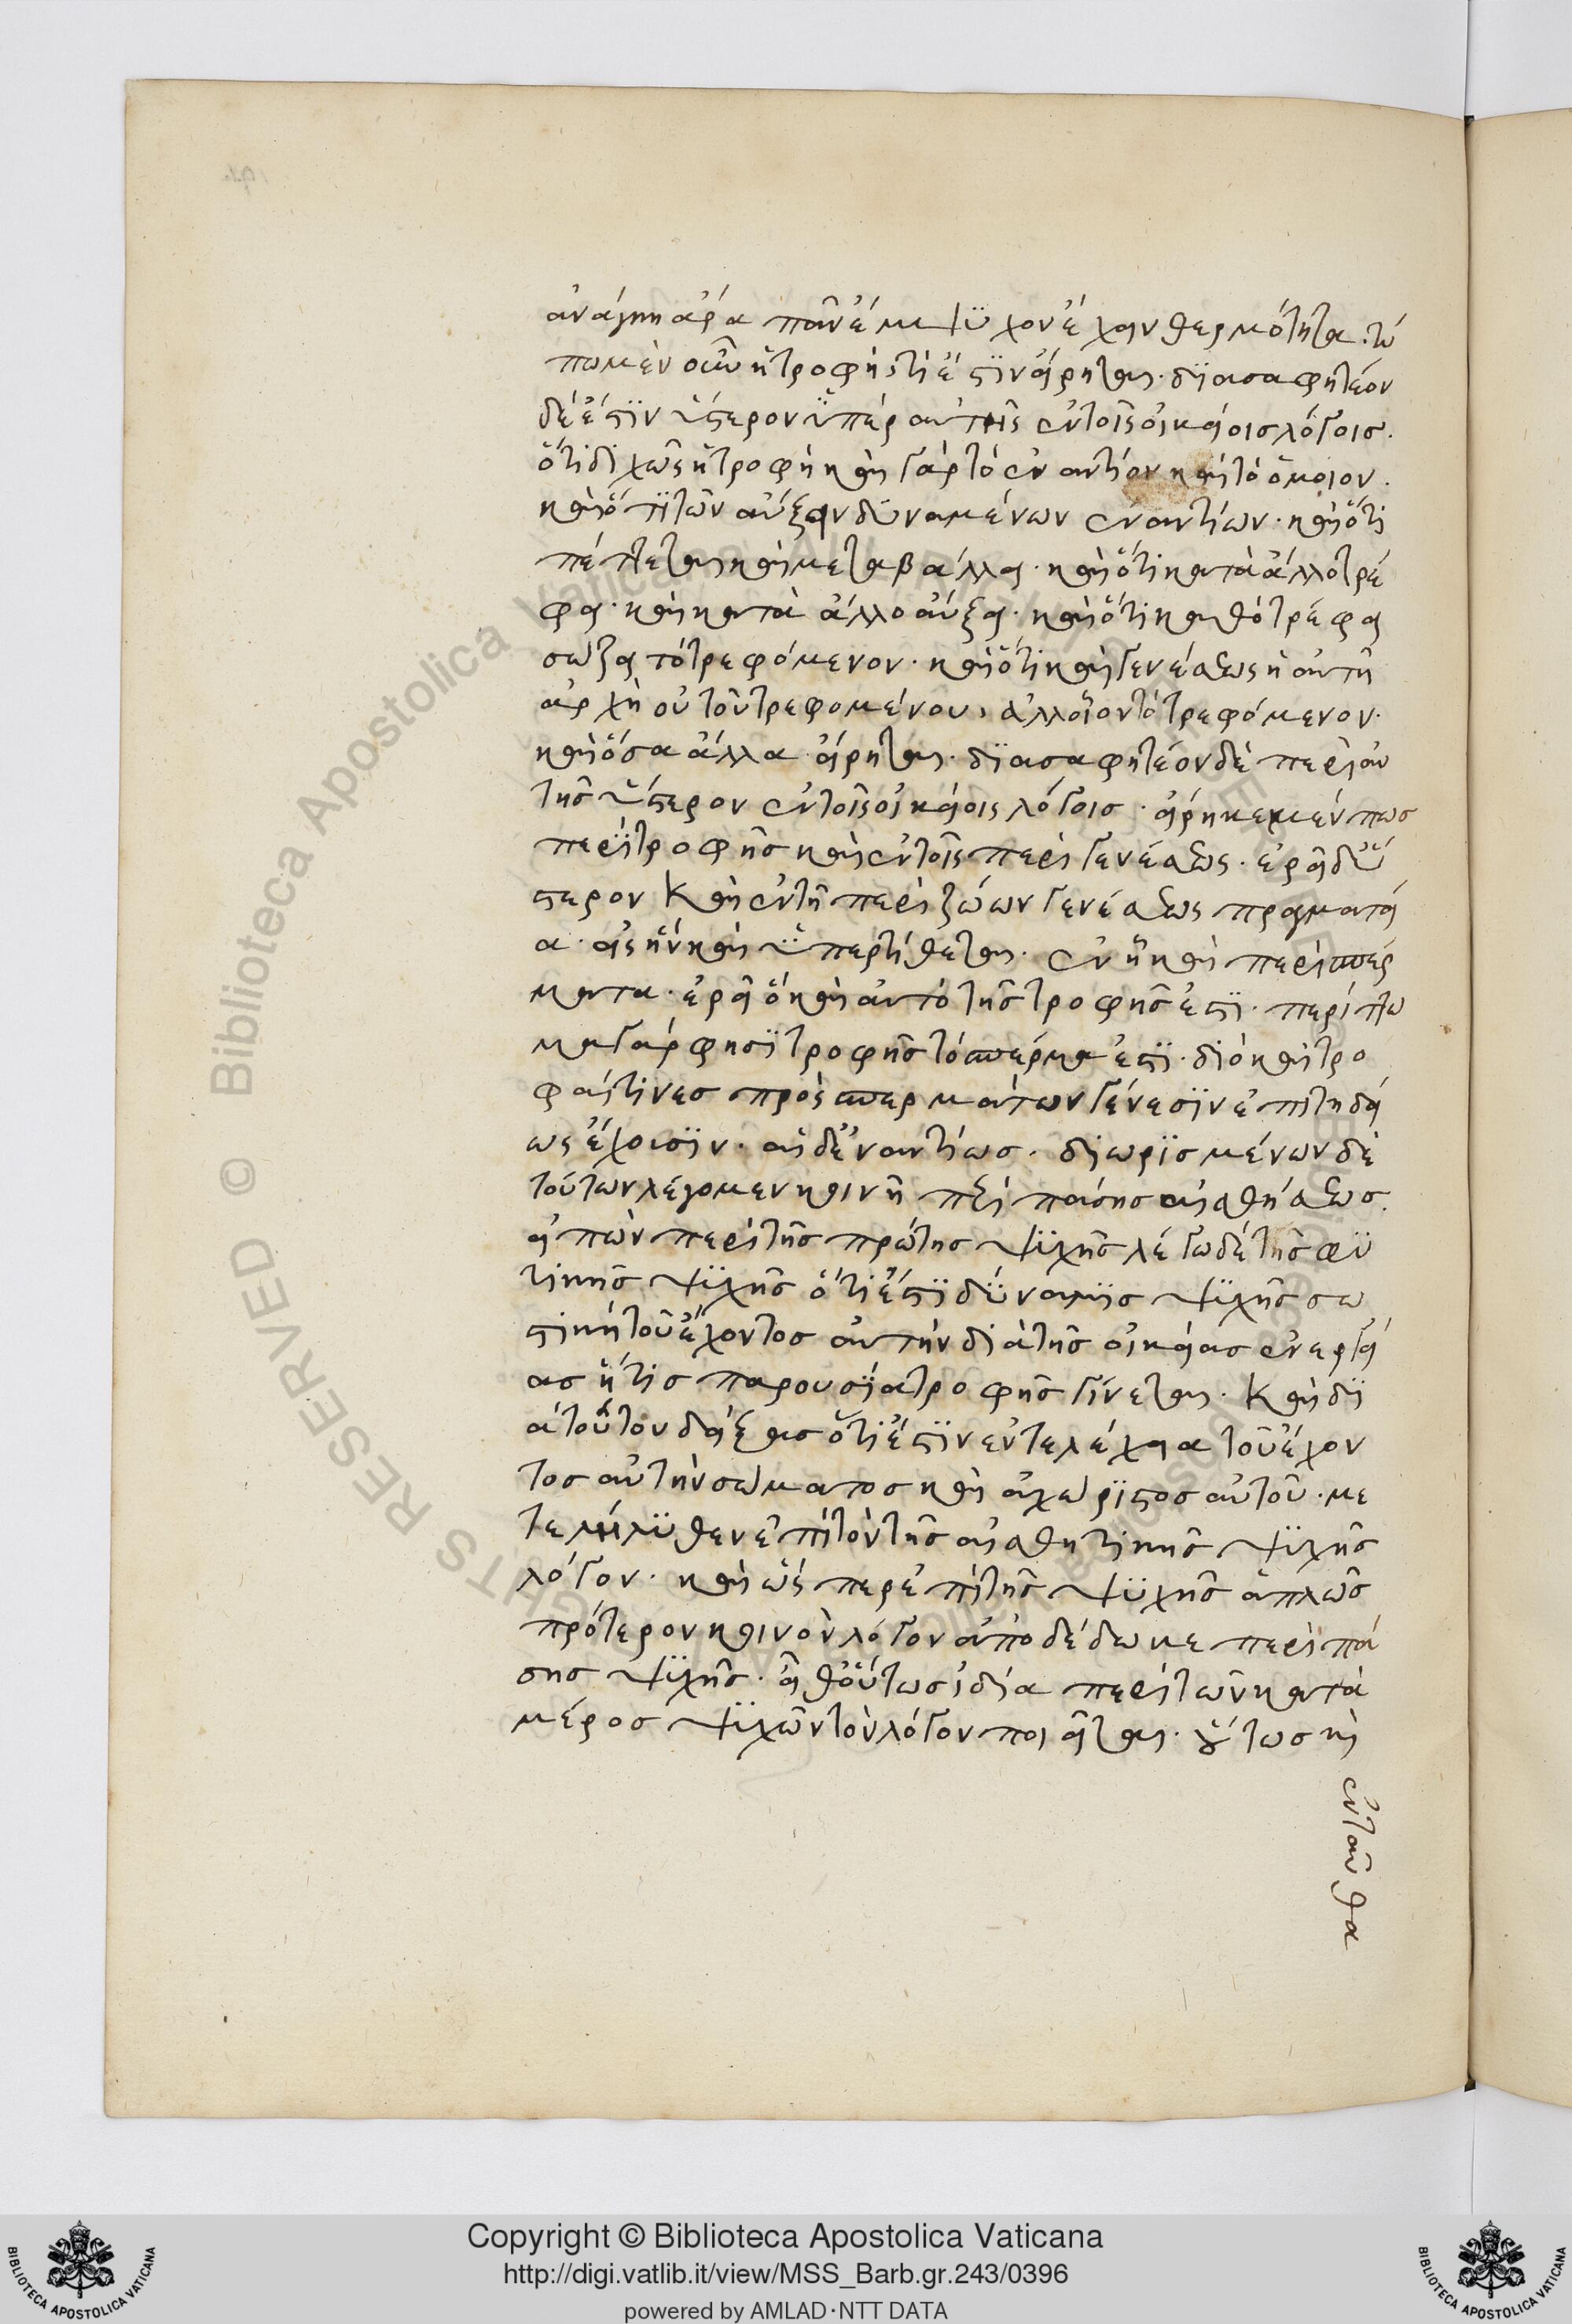 ἀνάγκη ἄρα πᾶν ἔμψυχον ἔχειν θερμότητα. τύ
πῳ μὲν οὖν ἡ τροφὴ, τί ἐστὶν εἴρηται. διασαφητέον
δέ ἐστιν ὕστερον ὑπὲρ αὐτῆς ἐν τοῖς οἰκείοις λόγοις.
ὅτι διχῶς ἡ τροφὴ καὶ γὰρ τὸ ἐναντίον καὶ τὸ ὅμοιον.
καὶ ὅτι τῶν αὔξειν δυναμένων ἐναντίων. καὶ ὅτι
πέπτεται καὶ μεταβάλλει. καὶ ὅτι κατὰ ἄλλο τρέ
φει. καὶ κατὰ ἄλλο αὔξει. καὶ ὅτι καθὸ τρέφει
σώζει τὸ τρεφόμενον. καὶ ὅτι καὶ γενέσεως ἡ αὐτὴ
ἀρχὴ οὐ τοῦ τρεφομένου, ἀλλ' οἷον τὸ τρεφόμενον.
καὶ ὅσα ἄλλα εἴρηται. διασαφητέον δὲ περὶ αὐ
τῆς ὕστερον ἐν τοῖς οἰκείοις λόγοις. εἴρηκε μέν πως
περὶ τροφῆς καὶ ἐν τοῖς περὶ γενέσεως. ἐρεῖ δ' ὕ
στερον καὶ ἐν τῇ περὶ ζώων γενέσεως πραγματεί
α. εἰς ἣν καὶ ὑπερτίθεται. ἐν ᾗ καὶ περὶ σπέρ
ματα. ἐρεῖ ὃ καὶ αὐτὸ τῆς τροφῆς ἐστι. περίττω
μα γάρ φησι τροφῆς τὸ σπέρμα ἐστι. διὸ καὶ τρο
φαί τινες πρὸς σπερμάτων γένεσιν ἐπιτηδεί
ως ἔχουσιν. αἱ δ' ἐναντίως. διωρισμένων δὲ
τούτων λέγομεν κοινῇ περὶ πάσης αἰσθήσεως.
εἰπὼν περὶ τῆς πρώτης ψυχῆς λέγω δὲ τῆς φυ
τικῆς ψυχῆς ὅτι ἐστὶ δύναμις ψυχῆς σω
στικὴ τοῦ ἔχοντος αὐτὴν διὰ τῆς οἰκείας ἐνεργεί
ας ἥτις παρουσία τροφῆς γίνεται. καὶ δι
ὰ τοῦτου δείξας ὅτι ἐστὶν ἐντελέχεια τοῦ ἔχον
τος αὐτὴν σώματος καὶ ἀχώριστος αὐτοῦ. με
τελήλυθεν ἐπὶ τὸν τῆς αἰσθητικῆς ψυχῆς
λόγον. καὶ ὥσπερ ἐπὶ τῆς ψυχῆς ἁπλῶς
πρότερον κοινὸν λόγον ἀποδέδωκε περὶ πά
σης ψυχῆς. εἶθ' οὕτως ἰδία περὶ τῶν κατὰ
μέρος ψυχῶν τὸν λόγον ποιεῖται. οὕτως καὶ
ἐνταῦθα